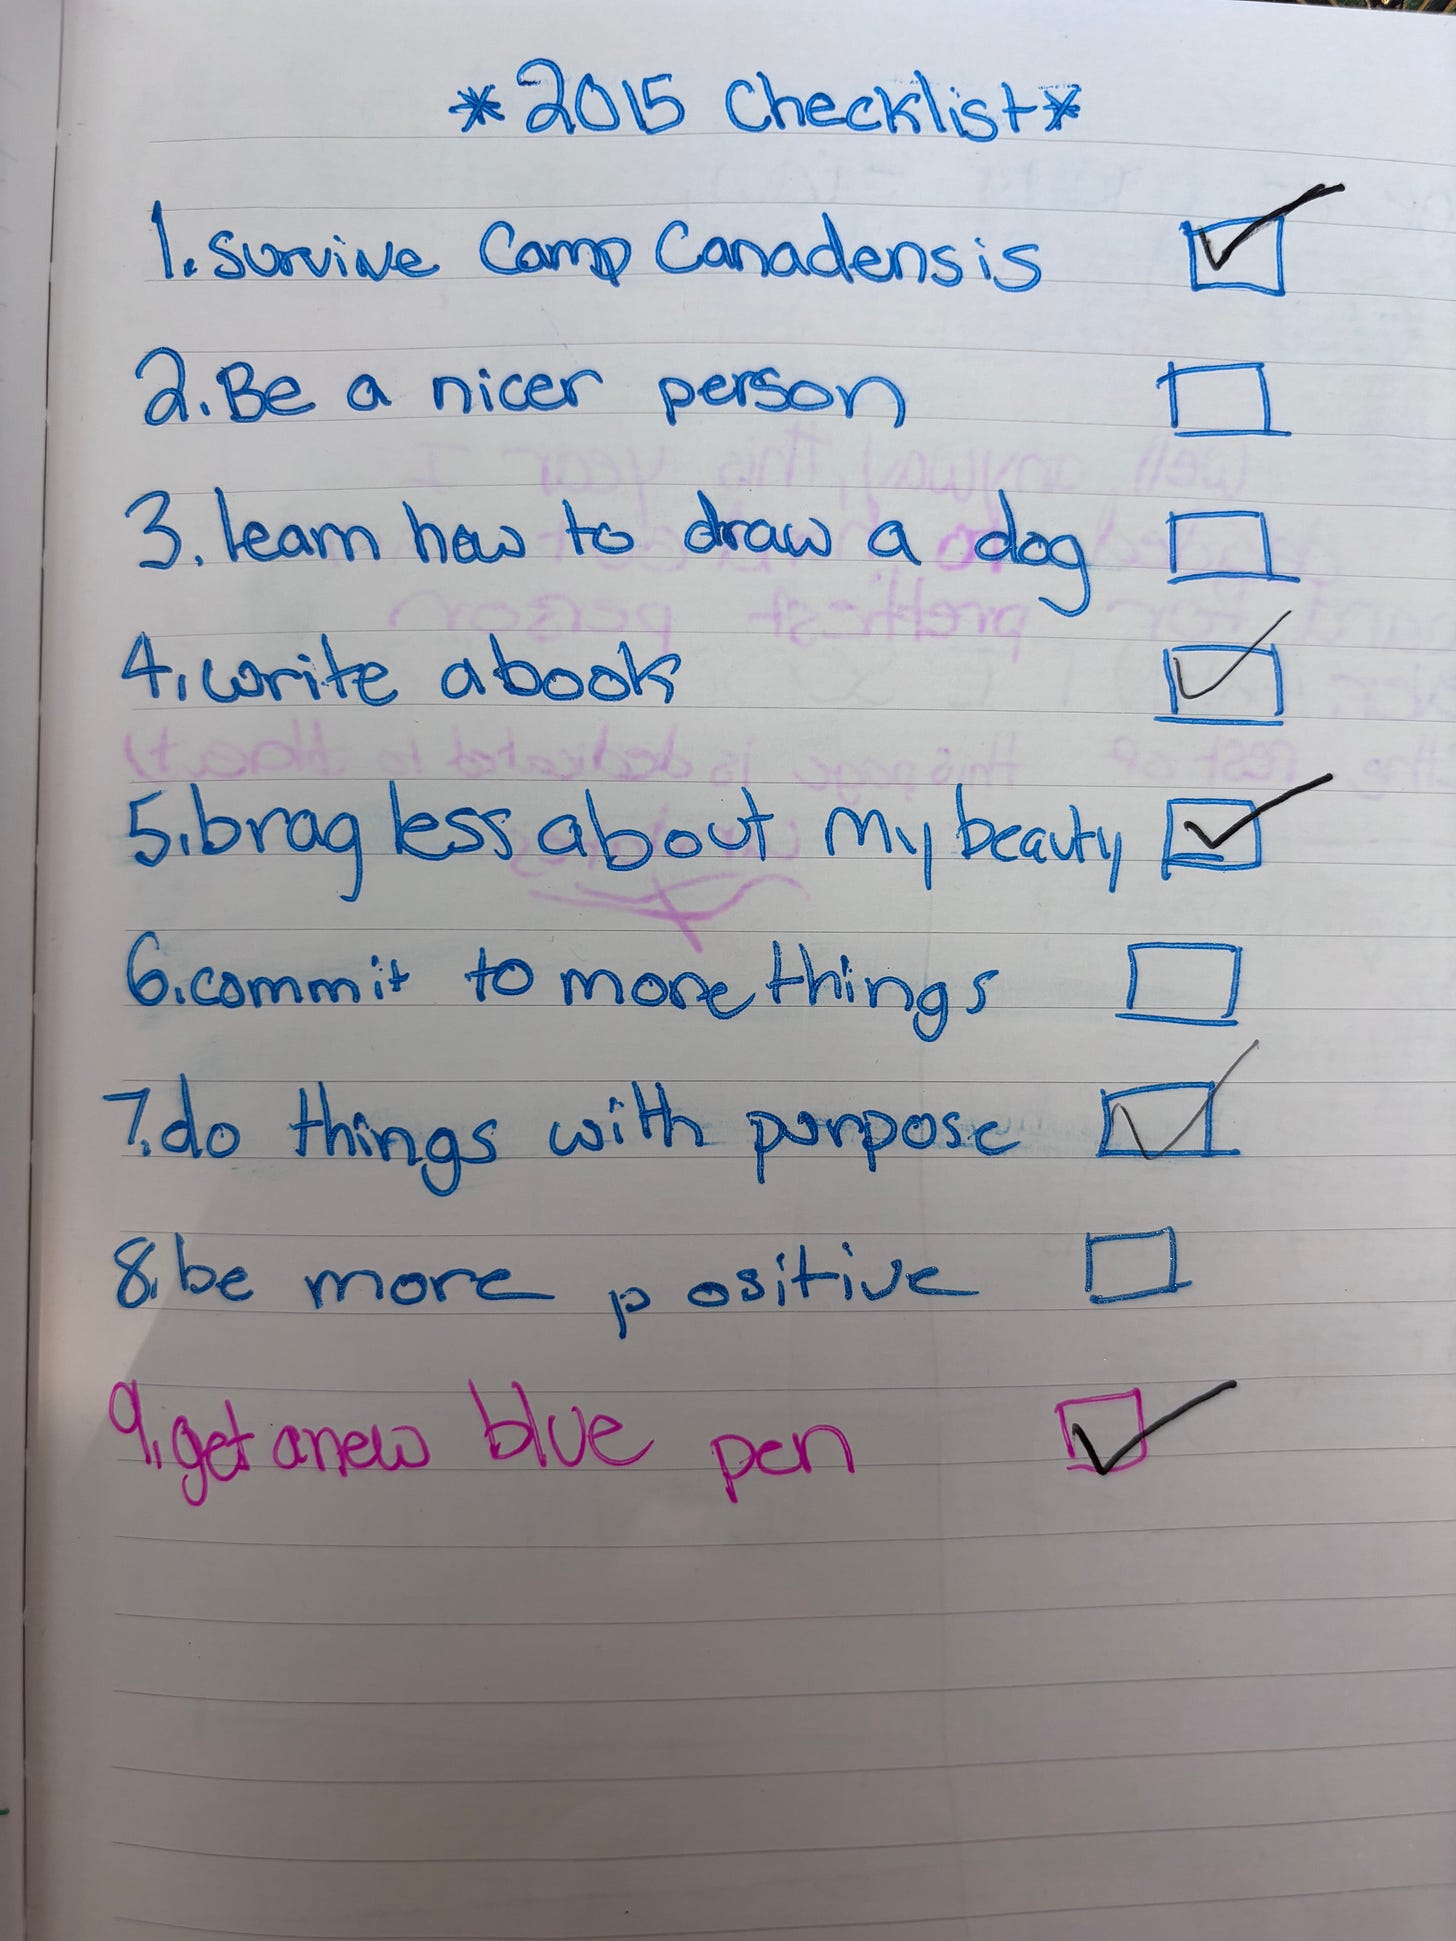 *2015 Checklist*
1. survive Camp Canadensis ☑
2. Be a nicer person ☐
3. learn how to draw a dog ☐
4. write a book ☑
5. brag less about my beauty ☑
6. commit to more things ☐
7. do things with purpose ☑
8. be more positive ☐
9. get a new blue pen ☑